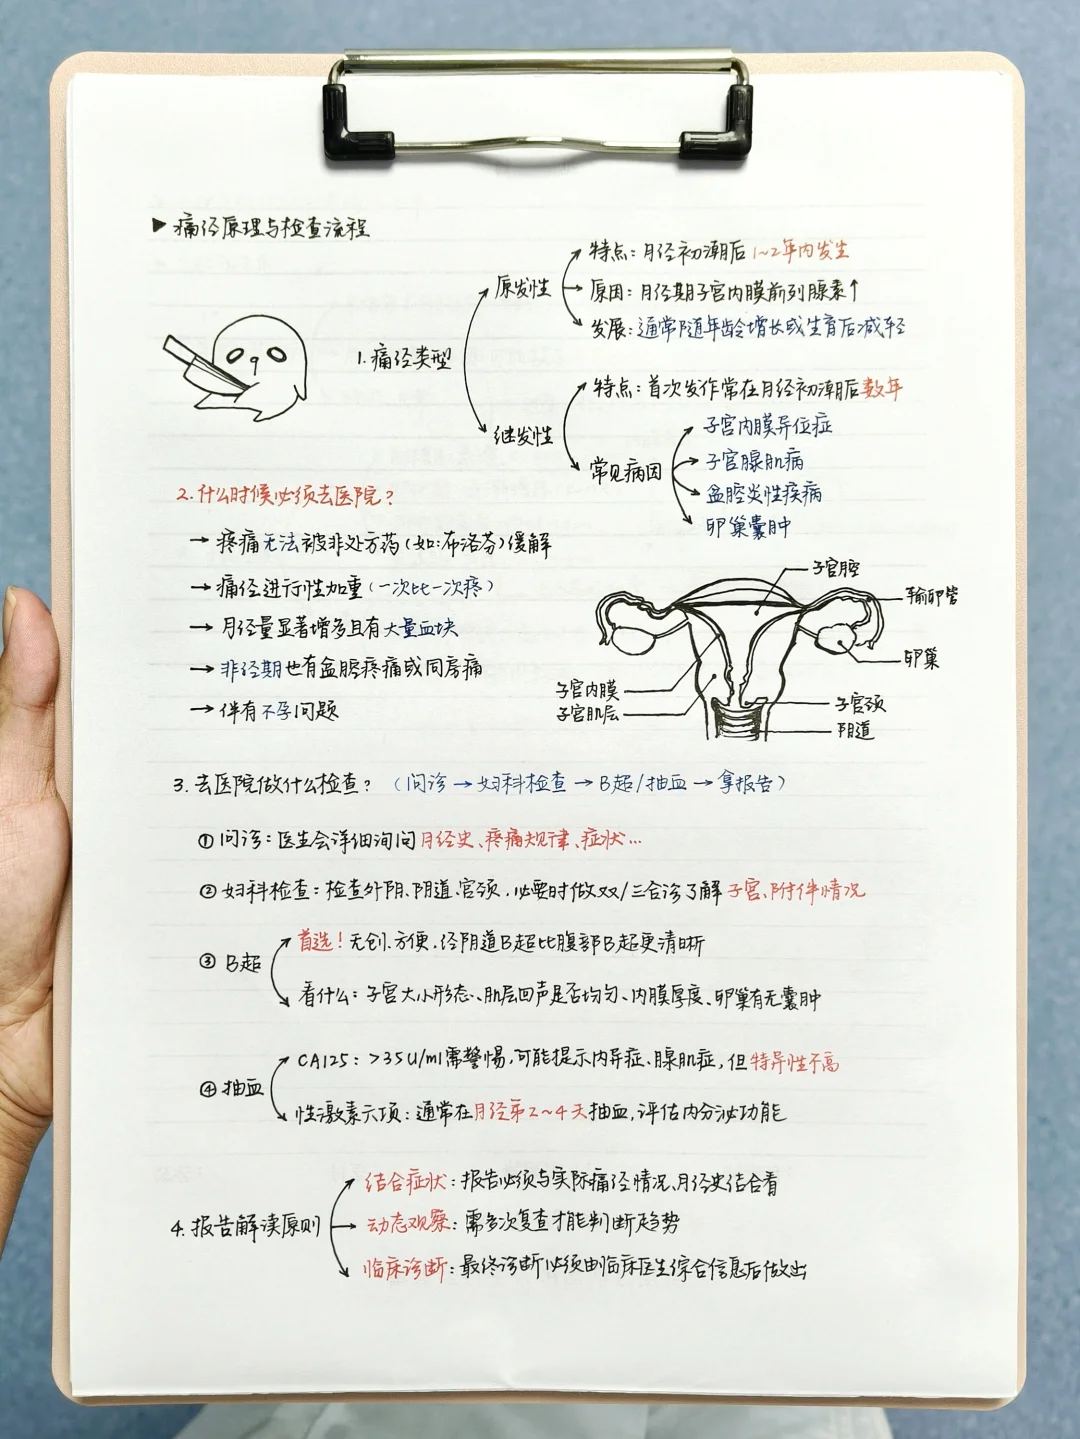 ▶ 痛经原理与检查流程
1. 痛经类型
原发性
特点：月经初潮后1~2年内发生
原因：月经期子宫内膜前列腺素↑
发展：通常随年龄增长或生育后减轻
继发性
特点：首次发作常在月经初潮后数年
常见病因
子宫内膜异位症
子宫腺肌病
盆腔炎性疾病
卵巢囊肿
2. 什么时候必须去医院？
→ 疼痛无法被非处方药（如：布洛芬）缓解
→ 痛经进行性加重（一次比一次疼）
→ 月经量显著增多且有大量血块
→ 非经期也有盆腔疼痛或同房痛
→ 伴有不孕问题
子宫腔
输卵管
卵巢
子宫内膜
子宫肌层
子宫颈
阴道
3. 去医院做什么检查？（问诊→妇科检查→B超/抽血→拿报告）
① 问诊：医生会详细询问月经史、疼痛规律、症状…
② 妇科检查：检查外阴、阴道、宫颈，必要时做双/三合诊了解子宫、附件情况
③ B超
首选！无创、方便，经阴道B超比腹部B超更清晰
看什么：子宫大小形态、肌层回声是否均匀、内膜厚度、卵巢有无囊肿
④ 抽血
CA125：>35U/ml需警惕，可能提示内异症、腺肌症，但特异性不高
性激素六项：通常在月经第2~4天抽血，评估内分泌功能
4. 报告解读原则
结合症状：报告必须与实际痛经情况、月经史结合看
动态观察：需多次复查才能判断趋势
临床诊断：最终诊断必须由临床医生综合信息后做出